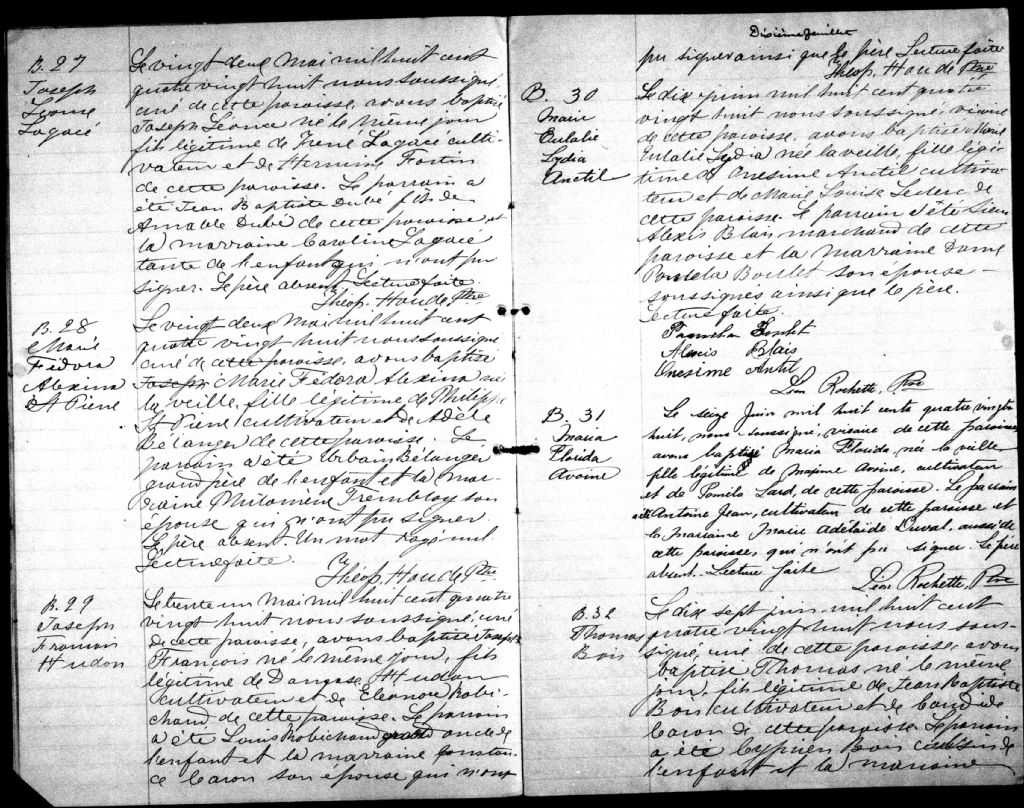 B. 27
Joseph
Léonce
Lagacé
Le vingt deux Mai mil huit cent
quatre vingt huit nous soussigné
curé de cette paroisse, avons baptisé
Joseph Léonce né le même jour
fils légitime de Irené Lagacé culti-
vateur et de Hermine Fortin
de cette paroisse. Le parrain a
été Jean Baptiste Dubé fils de
Amable Dubé de cette paroisse et
la marraine Caroline Lagacé
tante de l'enfant qui n'ont pu
signer. Le père absent. Lecture faite.
Théop. Houde Ptre
B. 28
Marie
Fédora
Alexina
St Pierre
Le vingt deux Mai mil huit cent
quatre vingt huit nous soussigné
curé de cette paroisse, avons baptisé
Joseph Marie Fédora Alexina née
la veille, fille légitime de Philippe
St Pierre cultivateur et de Adèle
Bélanger de cette paroisse. Le
parrain a été Urbain Bélanger
grand père de l'enfant et la mar-
raine Philomène Tremblay son
épouse qui n'ont pu signer.
Le père absent. Un mot rayé nul.
Lecture faite.
Théop. Houde Ptre
B. 29
Joseph
François
Hudon
Le trente un Mai mil huit cent quatre
vingt huit nous soussigné, curé
de cette paroisse, avons baptisé Joseph
François né le même jour, fils
légitime de Damase Hudon
cultivateur et de Eléonore Robi-
chaud de cette paroisse. Le parrain
a été Louis Robichaud oncle de
l'enfant et la marraine Constan-
ce Caron son épouse qui n'ont
Dixième feuillet
pu signer ainsi que le père. Lecture faite
Théop. Houde Ptre
B. 30
Marie
Eulalie
Lydia
Anctil
Le dix juin mil huit cent quatre
vingt huit nous soussigné, vicaire
de cette paroisse, avons baptisé Marie
Eulalie Lydia née la veille, fille légi-
time de Onesime Anctil cultiva-
teur et de Marie Louise Leclerc de
cette paroisse. Le parrain a été Sieur
Alexis Blais marchand de cette
paroisse et la marraine Dame
Paméla Boulet son épouse
soussignés ainsi que le père.
Lecture faite.
Paméla Boulet
Alexis Blais
Onesime Antil
Léon Rochette, Ptre
B. 31
Maria
Florida
Avoine
Le seize Juin mil huit cent quatre vingt
huit, nous soussigné, vicaire de cette paroisse
avons baptisé Maria Florida, née la veille
fille légitime de Maxime Avoine, cultivateur
et de Pamila Lard, de cette paroisse. Le parrain
a été Antoine Jean, cultivateur de cette paroisse et
la Marraine Marie Adélaïde Duval, aussi de
cette paroisse, qui n'ont pu signer. Le père
absent. Lecture faite
Léon Rochette, Ptre
B. 32
Thomas
Bois
Le dix sept juin mil huit cent
quatre vingt huit nous sous-
signé, curé de cette paroisse, avons
baptisé Thomas né le même
jour, fils légitime de Jean Baptiste
Bois cultivateur et de Candide
Caron de cette paroisse. Le parrain
a été Cyprien Bois cousin de
l'enfant et la marraine